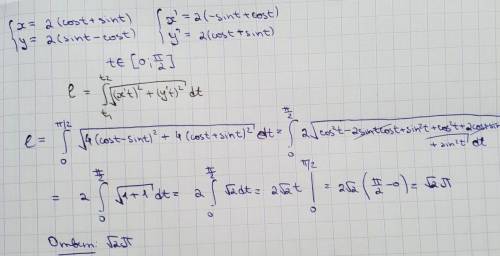 {x = 2(cost+sint) {x' = 2(-sint+cost)
{y = 2(sint-cost) {y' = 2(cost+sint)
t∈[0; π/2]
ℓ = ∫_{t₁}^{t₂} √((x't)² + (y't)²) dt
ℓ = ∫_0^{π/2} √(4(cost-sint)² + 4(cost+sint)²) dt = ∫_0^{π/2} 2√(cos²t-2sintcost+sin²t+cos²t+2costsint
+sin²t) dt
= 2 ∫_0^{π/2} √(1+1) dt = 2 ∫_0^{π/2} √2 dt = 2√2 t |_0^{π/2} = 2√2 (π/2 - 0) = √2 π
Ответ: √2 π